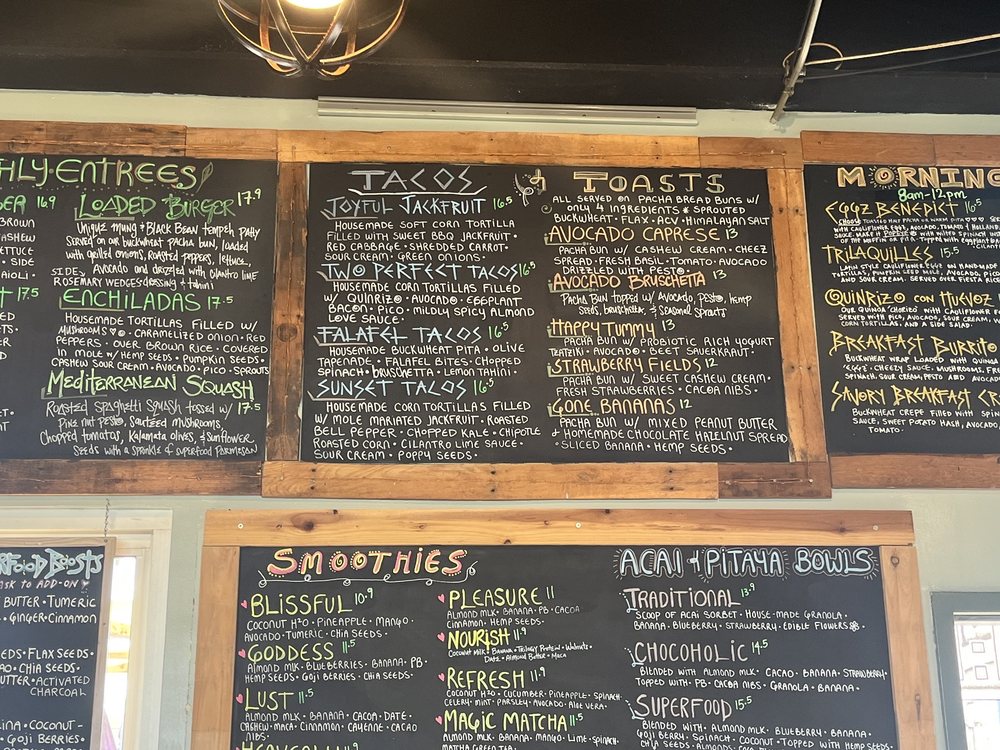 HLY ENTREES
16.9
LOADED BURGER 17.9
BROWN
CASHEW
LETTUCE
AIOLI
UNIQUE MUNG + BLACK BEAN TEMPEH PATTY
SERVED ON OUR BUCKWHEAT PACHA BUN, LOADED
WITH GRILLED ONIONS, ROASTED PEPPERS, LETTUCE,
AVOCADO AND DRIZZLED WITH CILANTRO LIME
SIDES ROSEMARY WEDGES DRESSING + TAHINI
17.5
ENCHILADAS 17.5
HOUSEMADE TORTILLAS FILLED W/
MUSHROOMS CARAMELIZED ONION RED
PEPPERS OVER BROWN RICE COVERED
IN MOLE W/ HEMP SEEDS PUMPKIN SEEDS
CASHEW SOUR CREAM AVOCADO PICO SPROUTS
MEDITERRANEAN SQUASH
17.5
ROASTED SPAGHETTI SQUASH TOSSED W/
PINE NUT PESTO, SAUTEED MUSHROOMS,
CHOPPED TOMATOES, KALAMATA OLIVES, & SUNFLOWER
SEEDS WITH A SPRINKLE OF SUPERFOOD PARMESAN
TACOS
JOYFUL JACKFRUIT 16.5
HOUSEMADE SOFT CORN TORTILLA
FILLED WITH SWEET BBQ JACKFRUIT
RED CABBAGE SHREDDED CARROT
SOUR CREAM GREEN ONIONS
TWO PERFECT TACOS 16.5
HOUSEMADE CORN TORTILLAS FILLED
W/ QUINRIZO AVOCADO EGGPLANT
BACON PICO MILDLY SPICY ALMOND
LOVE SAUCE
FALAFEL TACOS 16.5
HOUSEMADE BUCKWHEAT PITA OLIVE
TAPENADE FALAFEL BITES CHOPPED
SPINACH BRUSCHETTA LEMON TAHINI
SUNSET TACOS 16.5
HOUSEMADE CORN TORTILLAS FILLED
W/ MOLE MARINATED JACKFRUIT ROASTED
BELL PEPPER CHOPPED KALE CHIPOTLE
ROASTED CORN CILANTRO LIME SAUCE
SOUR CREAM POPPY SEEDS
TOASTS
ALL SERVED ON PACHA BREAD BUNS W/
ONLY 4 INGREDIENTS & SPROUTED
BUCKWHEAT FLAX ACV HIMALAYAN SALT
AVOCADO CAPRESE 13
PACHA BUN W/ CASHEW CREAM CHEEZ
SPREAD FRESH BASIL TOMATO AVOCADO
DRIZZLED WITH PESTO
AVOCADO BRUSCHETTA 13
PACHA BUN TOPPED W/ AVOCADO, PESTO, HEMP
SEEDS, BRUSCHETTA, & SEASONAL SPROUTS
HAPPY TUMMY 13
PACHA BUN W/ PROBIOTIC RICH YOGURT
TZATZIKI AVOCADO BEET SAUERKRAUT
STRAWBERRY FIELDS 12
PACHA BUN W/ SWEET CASHEW CREAM
FRESH STRAWBERRIES CACOA NIBS
GONE BANANAS 12
PACHA BUN W/ MIXED PEANUT BUTTER
& HOMEMADE CHOCOLATE HAZELNUT SPREAD
SLICED BANANA HEMP SEEDS
MORNING
8AM-12PM
EGGZ BENEDICT 16.5
TRILAQUILLES 15.5
QUINRIZO CON HUEVOZ
CORN TORTILLAS, AND A SIDE SALAD
BREAKFAST BURRITO
BUCKWHEAT WRAP LOADED WITH QUINOA
SPINACH, SOUR CREAM, PESTO AND AVOCADO
SAVORY BREAKFAST CR
BUCKWHEAT CREPE FILLED WITH SPIN
SAUCE, SWEET POTATO HASH, AVOCADO,
TOMATO
RFOOD BOOSTS
ASK TO ADD-ON
BUTTER TUMERIC
GINGER CINNAMON
SEEDS FLAX SEEDS
CHIA SEEDS
BUTTER ACTIVATED
CHARCOAL
COCONUT
GOJI BERRIES
SMOOTHIES
BLISSFUL 10.9
COCONUT H2O PINEAPPLE MANGO
AVOCADO TUMERIC CHIA SEEDS
GODDESS 11.5
ALMOND MLK BLUEBERRIES BANANA PB
HEMP SEEDS GOJI BERRIES CHIA SEEDS
LUST 11.5
ALMOND MLK BANANA CACOA DATE
CASHEW MACA CINNAMON CAYENNE CACAO
NIBS
HEAVENLY 11.9
PLEASURE 11
ALMOND MLK BANANA PB CACOA
CINNAMON
NOURISH 11.9
COCONUT MILK BANANA TRILOGY PROTEIN WALNUTS
DATE ALMOND BUTTER MACA
REFRESH 11.9
COCONUT H2O CUCUMBER PINEAPPLE SPINACH
CELERY MINT PARSLEY AVOCADO ALOE VERA
MAGIC MATCHA 11.5
ALMOND MLK BANANA MANGO LIME SPINACH
MATCHA GREEN TEA
ACAI & PITAYA BOWLS
TRADITIONAL 13.9
SCOOP OF ACAI SORBET HOUSE-MADE GRANOLA
BANANA BLUEBERRY STRAWBERRY EDIBLE FLOWERS
CHOCOHOLIC 14.5
BLENDED WITH ALMOND MLK CACAO BANANA STRAWBERRY
TOPPED WITH PB CACOA NIBS GRANOLA BANANA
SUPERFOOD 15.5
BLENDED WITH ALMOND MLK BLUEBERRY BANANA
GOJI BERRY SPINACH COCONUT TOPPED W/ HEMP SEEDS